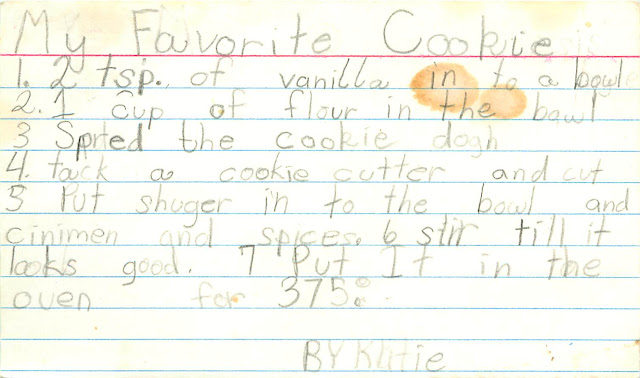 My Favorite Cookie
1. 2 tsp. of vanilla in to a bowl
2. 1 cup of flour in the bowl
3 Spred the cookie dogh
4. tack a cookie cutter and cut
5 Put shuger in to the bowl and
cinimen and spices. 6 stir till it
looks good. 7 Put It in the
oven for 375°
BY Katie